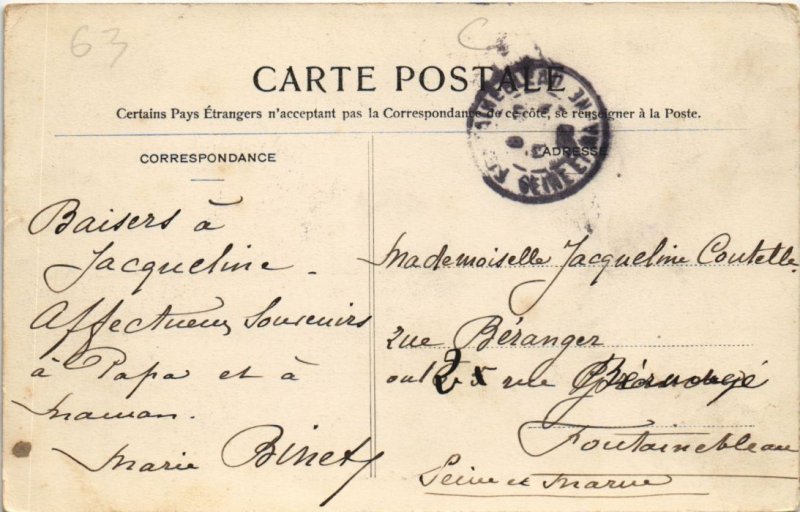 63
CARTE POSTALE
Certains Pays Étrangers n'acceptant pas la Correspondance de ce côté, se renseigner à la Poste.
CORRESPONDANCE
L'ADRESSE
SEINE ET MARNE
Baisers à
Jacqueline.
Affectueux Souvenirs
à Papa et à
maman.
Marie Binet
Mademoiselle Jacqueline Coutelle
rue Béranger
25 rue
Fontainebleau
Seine et Marne